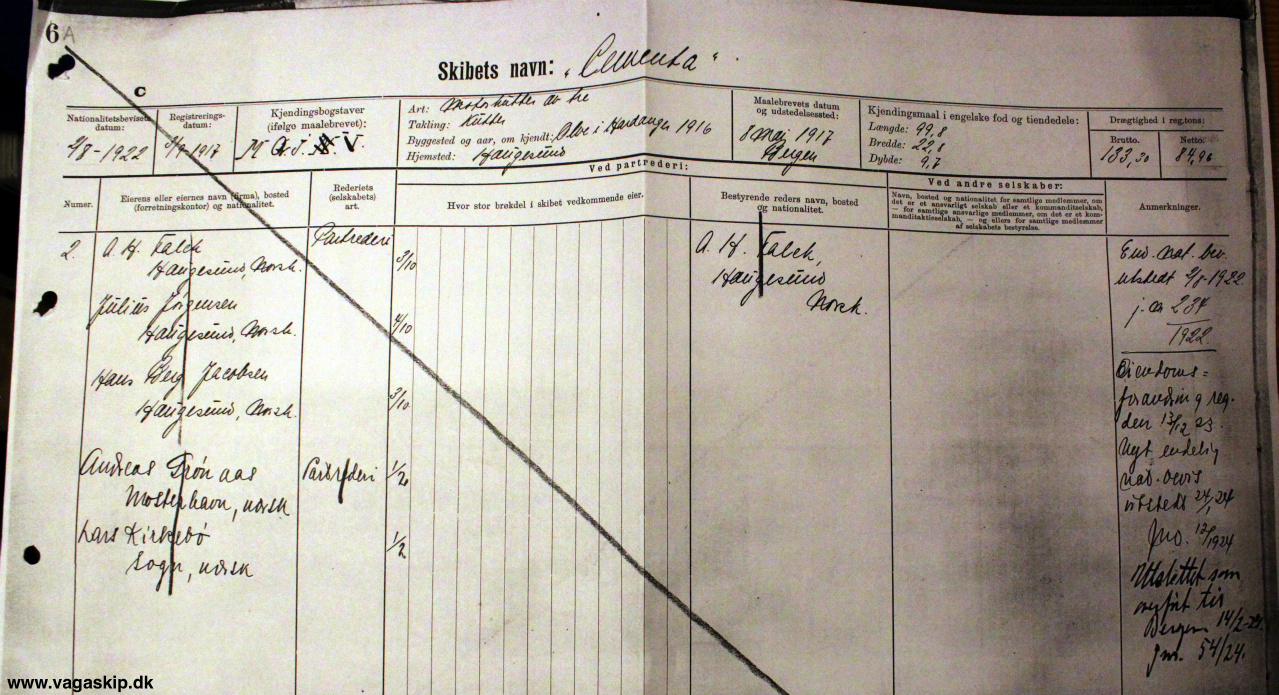 6A
Skibets navn: „Cementa"
C
Nationalitetsbevisets datum:
9/8-1922
Registrerings-datum:
1917
Kjendingsbogstaver (ifølge maalebrevet):
M
V.
Art: Motorkutter av tre
Takling: Kutter
Byggested og aar, om kjendt: Ølve i Hardanger 1916
Hjemsted: Haugesund
Maalebrevets datum og utstedelsessted:
8 mai 1917
Bergen
Kjendingsmaal i engelske fod og tiendedele:
Længde: 99,8
Bredde: 22,8
Dybde: 9,7
Drægtighed i reg.tons:
Brutto. Netto.
133,30 84,96
Ved partrederi:
Ved andre selskaber:
Numer.
Eierens eller eiernes navn (firma), bosted
(forretningskontor) og nationalitet.
Rederiets
(selskabets)
art.
Hvor stor brøkdel i skibet vedkommende eier.
Bestyrende reders navn, bosted
og nationalitet.
Navn, bosted og nationalitet for samtlige medlemmer, om
det er et ansvarlig selskab eller et kommanditselskab,
— for samtlige ansvarlige medlemmer, om det er et kom-
manditaktieselskab, — og ellers for samtlige medlemmer
af selskabets bestyrelse.
Anmerkninger.
2. A. H. Falck Partrederi 3/10 A. H. Falck,
Haugesund, Norsk. Haugesund
Norsk.
Julius Jørgensen
Haugesund, Norsk. 4/10
Hans Berg Jacobsen
Haugesund, Norsk. 3/10
Andreas Grønaas Partrederi 1/2
Mosterhavn, norsk
Lars Kirkebø 1/2
Sogn, norsk
End. nat. bev.
utstedt 9/8-1922
j. nr 234
1922
Eiendoms=
forandring reg.
den 13/12 23.
Nyt endelig
nat. bevis
utstedt 24/1 24
Jno. 12/1924
Utslettet som
overført til
Bergen 14/2-24.
jnr. 54/24.
www.vagaskip.dk